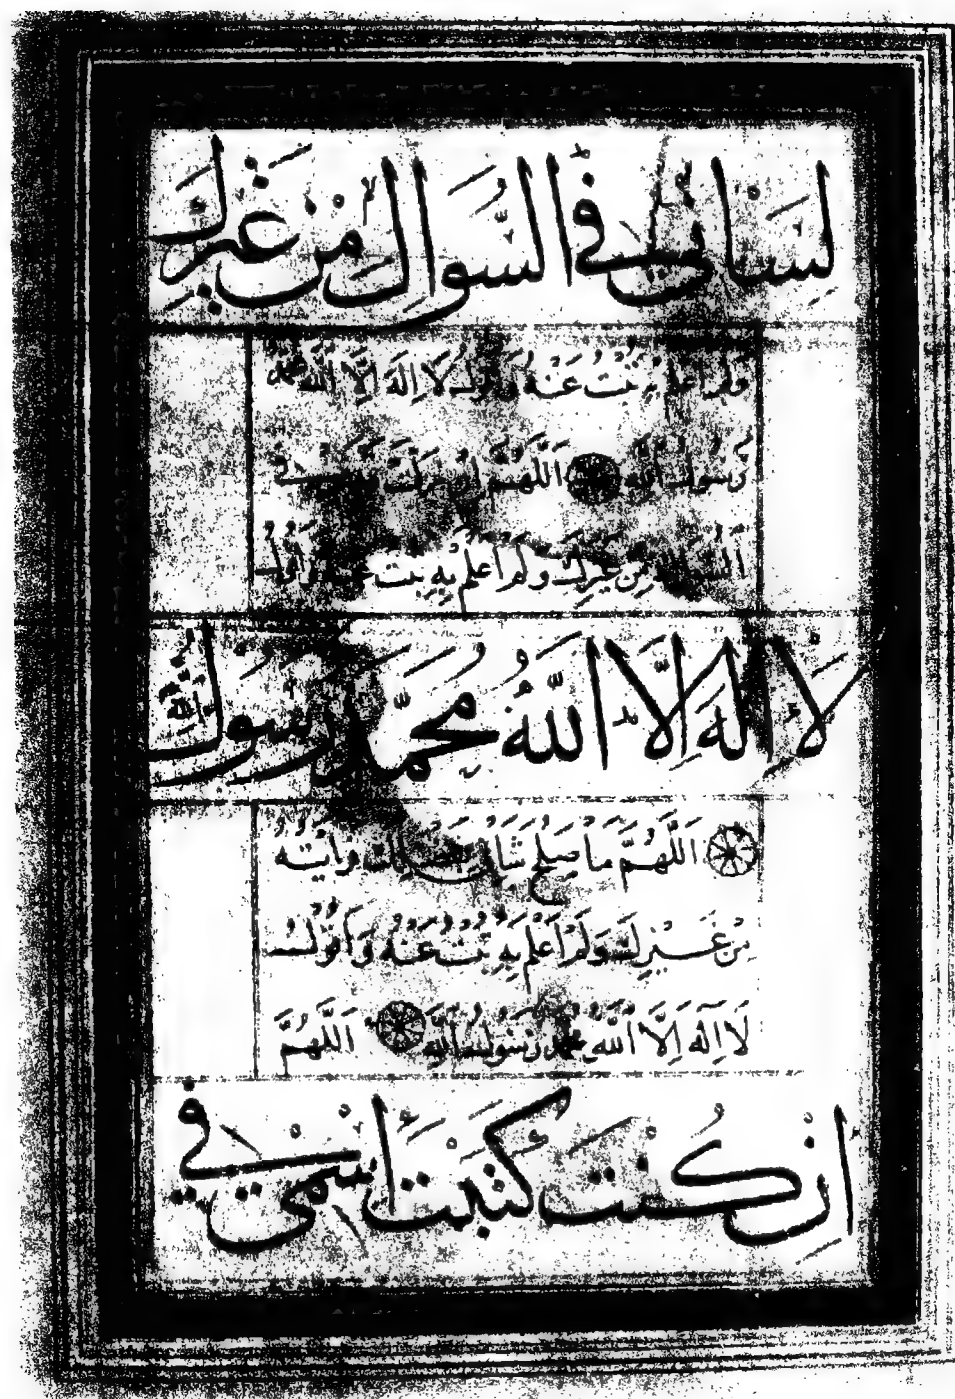 لِسَانِي فِي السُّوَالِ مِنْ غَيْرِكَ
وَلَمْ اَعْلَمْ بِهِ تُبْتُ عَنْهُ وَاَقُولُ لَا اِلَهَ اِلَّا اللَّهُ مُحَمَّدٌ
رَسُولُ اللَّهِ اَللَّهُمَّ اِنْ في
مِنْ غَيْرِكَ وَلَمْ اَعْلَمْ بِهِ تُبْتُ عَنْهُ وَاَقُولُ
لَا اِلَهَ اِلَّا اللَّهُ مُحَمَّدٌ رَسُولُ اللَّهِ
اَللَّهُمَّ مَا صَلَحَ شَأْنِي وَرَأَيْتُهُ
مِنْ غَيْرِكَ وَلَمْ اَعْلَمْ بِهِ تُبْتُ عَنْهُ وَاَقُولُ
لَا اِلَهَ اِلَّا اللَّهُ مُحَمَّدٌ رَسُولُ اللَّهِ اَللَّهُمَّ
اِنْ كُنْتَ كَتَبْتَ اَسْمِى فِي